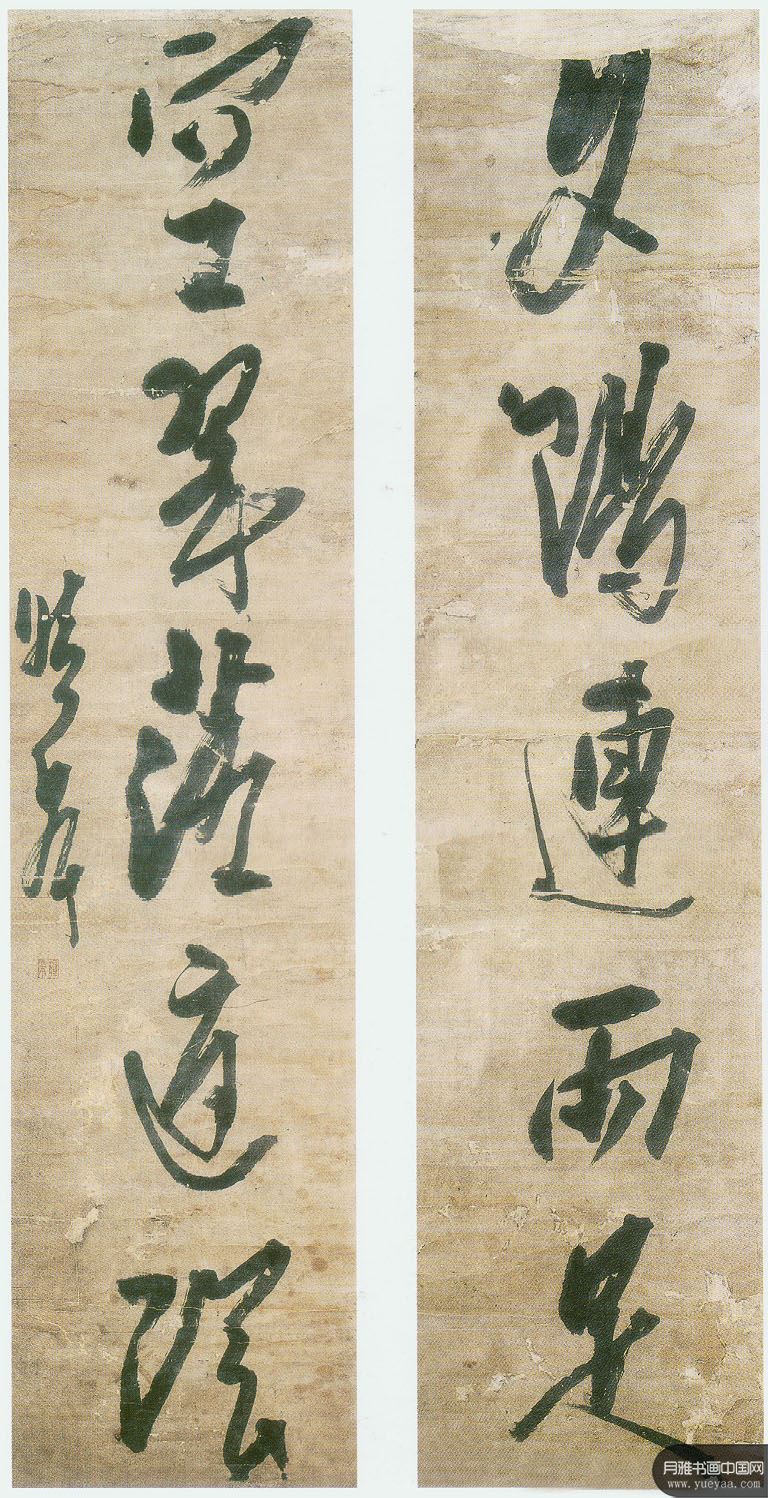 夕陽連雨足
空翠落庭陰
月雅书画中国网
www.yueyaa.com